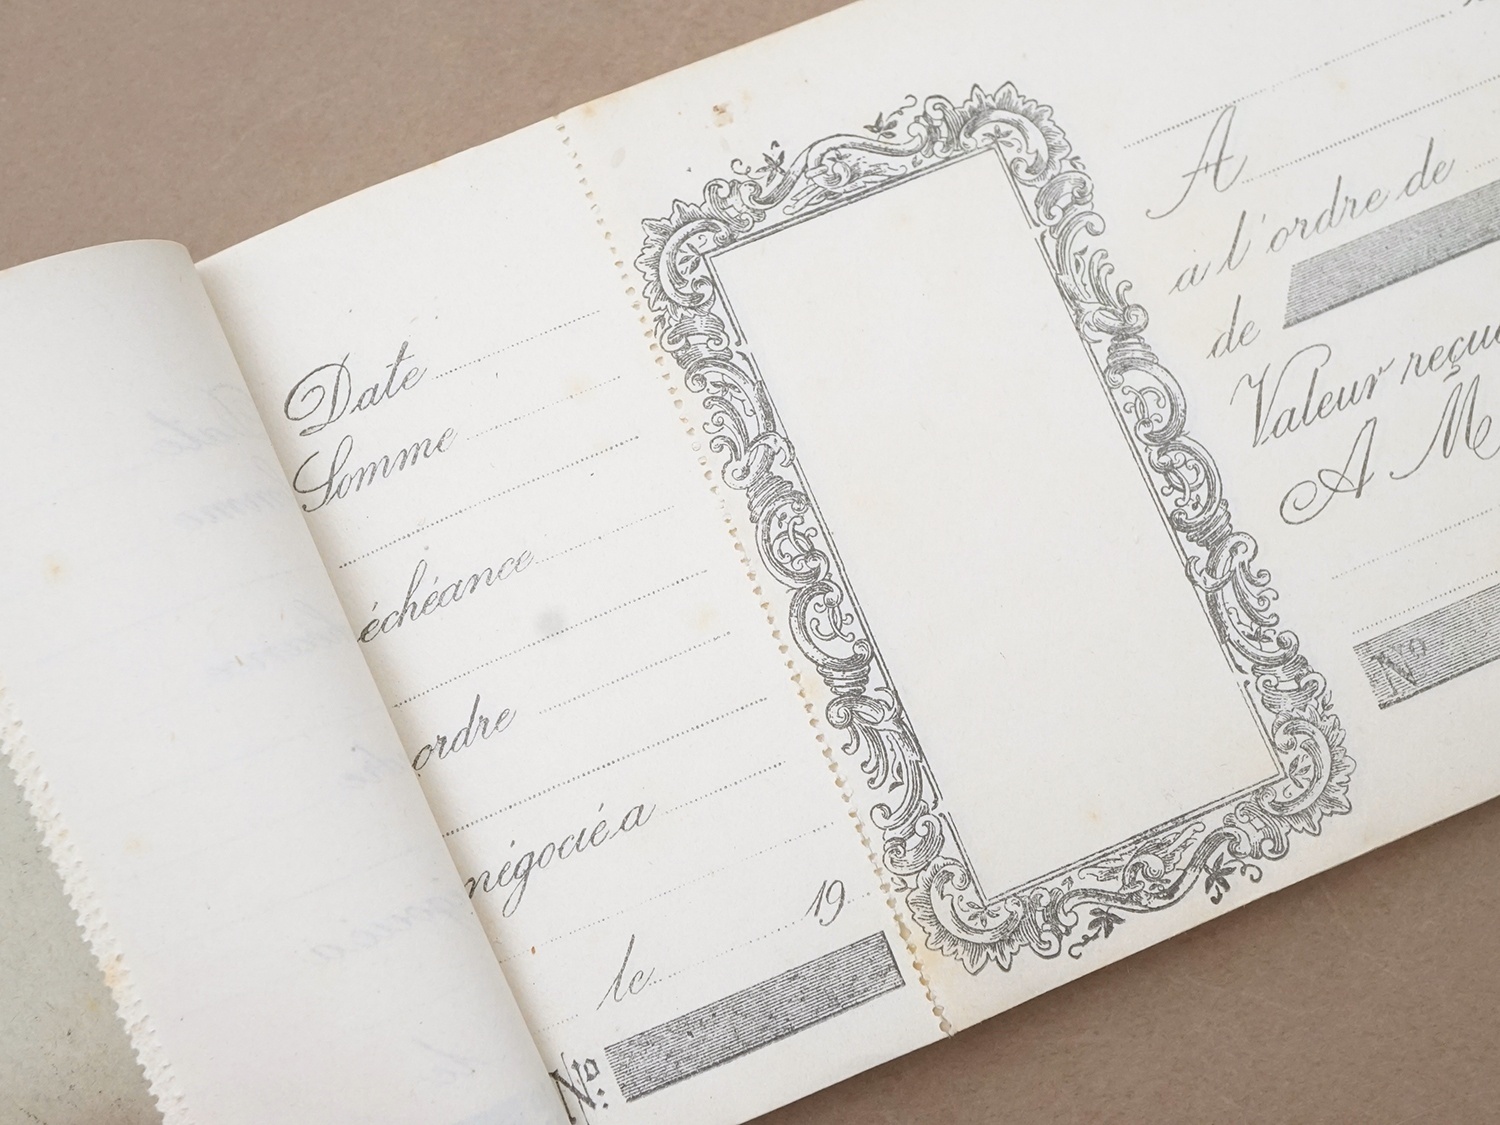 Date
Somme
échéance
ordre
négocié a
19
le
Nº.
A
a l'ordre de
de
Valeur reçue
A M
Nº